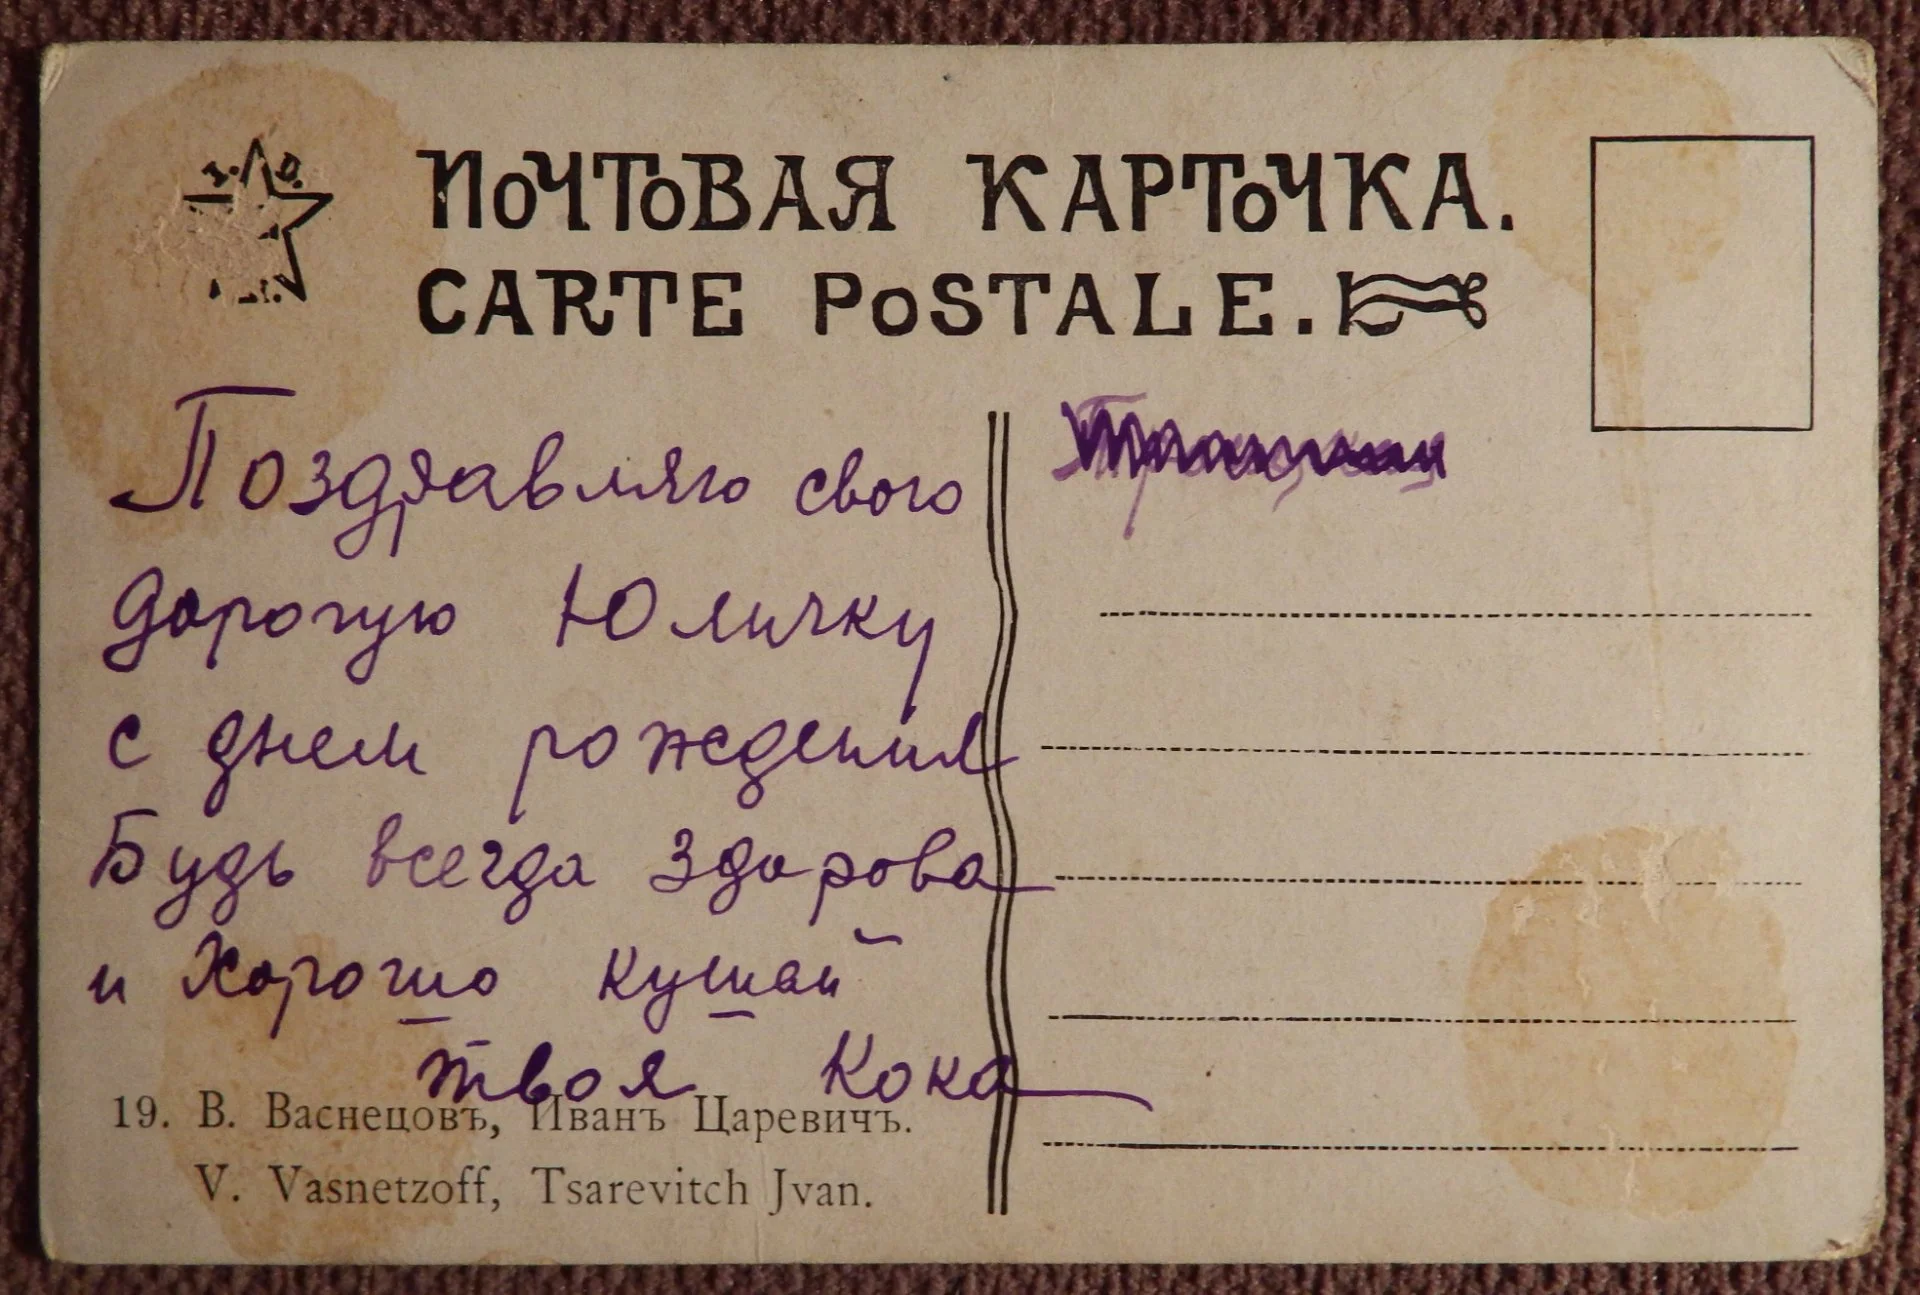 ПОЧТОВАЯ КАРТОЧКА.
CARTE POSTALE.
Поздравляю свою
дорогую Юличку
с днем рождения
Будь всегда здорова
и хорошо кушай
твоя Кока
19. В. Васнецовъ, Иванъ Царевичъ.
V. Vasnetzoff, Tsarevitch Jvan.